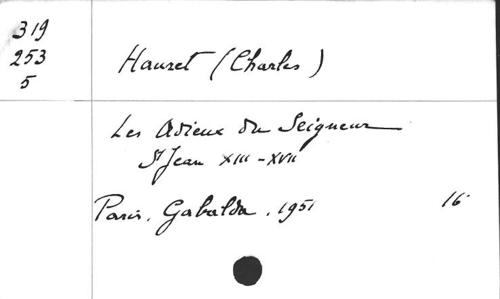 319
253
5
Hauret (Charles)
Les Adieux du Seigneur
St Jean XIII-XVII
Paris. Gabalda. 1951 16°